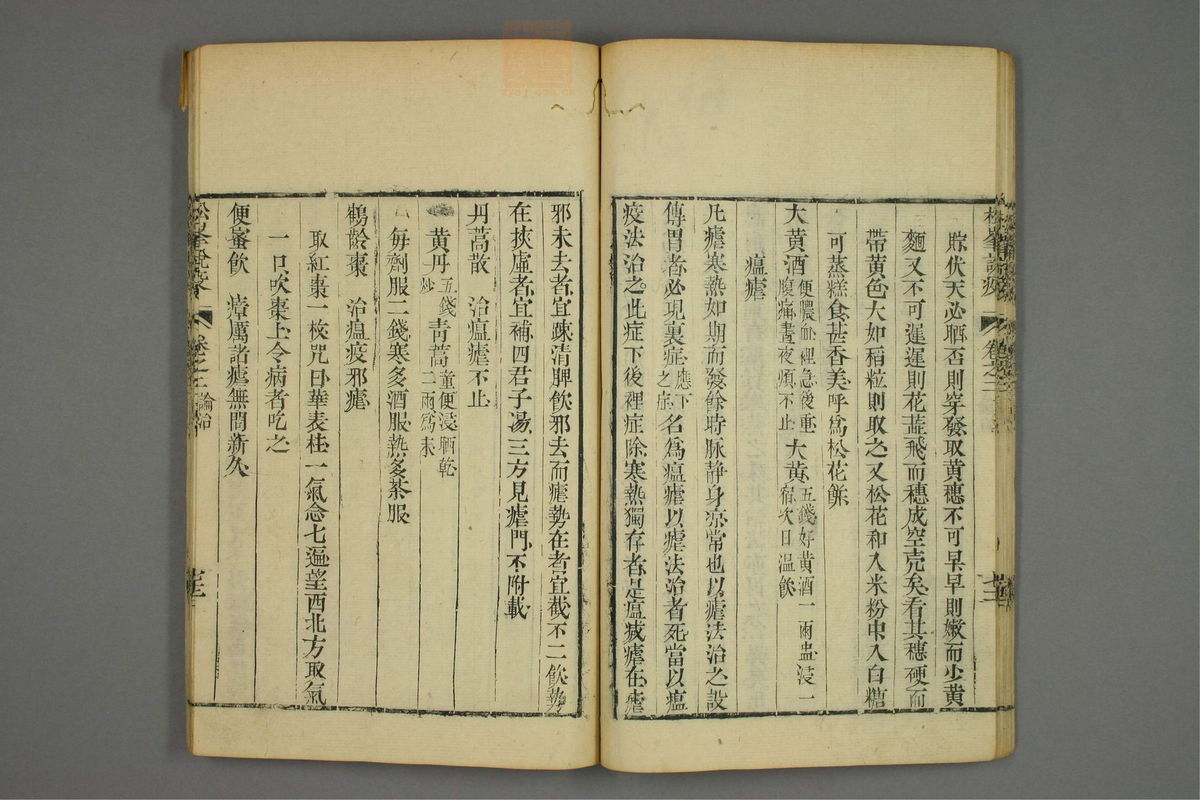 貯伏天必晒否則穿發取黃穗不可早早則嫩而少黃
麵又不可遲遲則花蕋飛而穗成空壳矣看其穗硬而
帶黃色大如稻粒則取之又松花和入米粉中入白糖
可蒸糕食甚香美呼爲松花餅
大黃酒 便膿血裡急後重腹痛晝夜頻不止 大黃 五錢好黃酒一兩盅浸一宿次日溫飲
瘟瘧
凡瘧寒熱如期而發餘時脉静身凉常也以瘧法治之設
傳胃者必現裏症 應下之症 名爲瘟瘧以瘧法治者死當以瘟
疫法治之此症下後裡症除寒熱獨存者是瘟減瘧在瘧
邪未去者宜疎清脾飲邪去而瘧勢在者宜截不二飲勢
在挾虛者宜補四君子湯三方見瘧門不附載
丹蒿散 治瘟瘧不止
黃丹 五錢炒 青蒿 童便浸晒乾二兩爲末
每劑服二錢寒多酒服熱多茶服
鶴齡棗 治瘟疫邪瘧
取紅棗一枚咒曰華表柱一氣念七遍望西北方取氣
一口吹棗上令病者吃之
便蜜飲 瘴厲諸瘧無問新久
松峯說疫 卷之二 論治